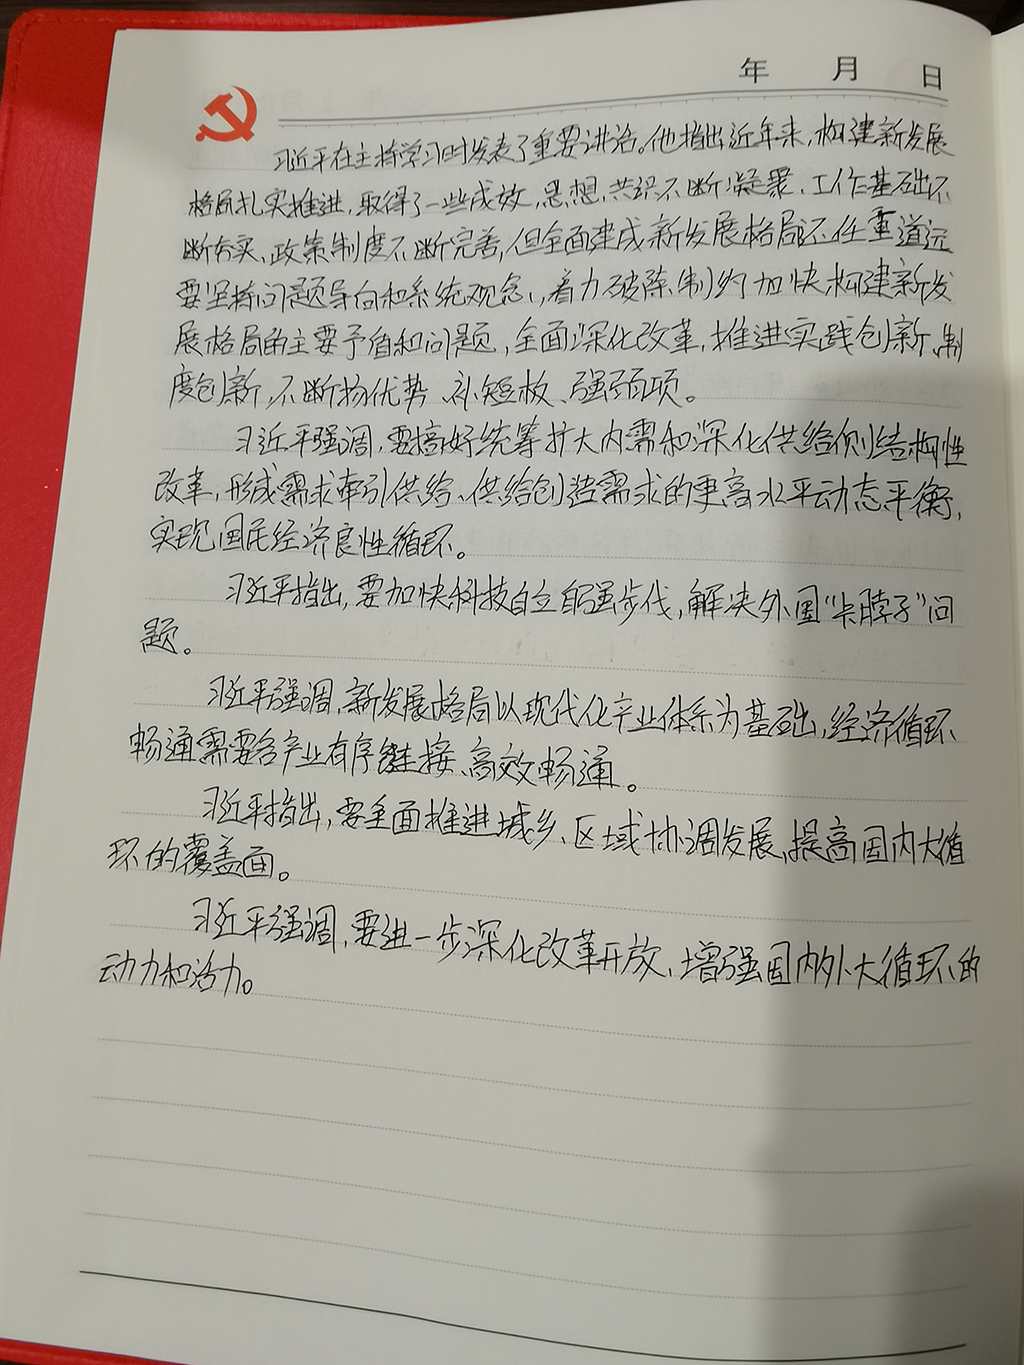 年 月 日
习近平在主持学习时发表了重要讲话。他指出近年来,构建新发展
格局扎实推进,取得了一些成效,思想共识不断凝聚、工作基础不
断夯实、政策制度不断完善,但全面建成新发展格局还任重道远
要坚持问题导向和系统观念,着力破除制约加快构建新发
展格局的主要矛盾和问题,全面深化改革,推进实践创新、制
度创新,不断扬优势、补短板、强弱项。
习近平强调,要搞好统筹扩大内需和深化供给侧结构性
改革,形成需求牵引供给、供给创造需求的更高水平动态平衡,
实现国民经济良性循环。
习近平指出,要加快科技自立自强步伐,解决外国“卡脖子”问
题。
习近平强调,新发展格局以现代化产业体系为基础,经济循环
畅通需要各产业有序链接、高效畅通。
习近平指出,要全面推进城乡、区域协调发展,提高国内大循
环的覆盖面。
习近平强调,要进一步深化改革开放,增强国内外大循环的
动力和活力。